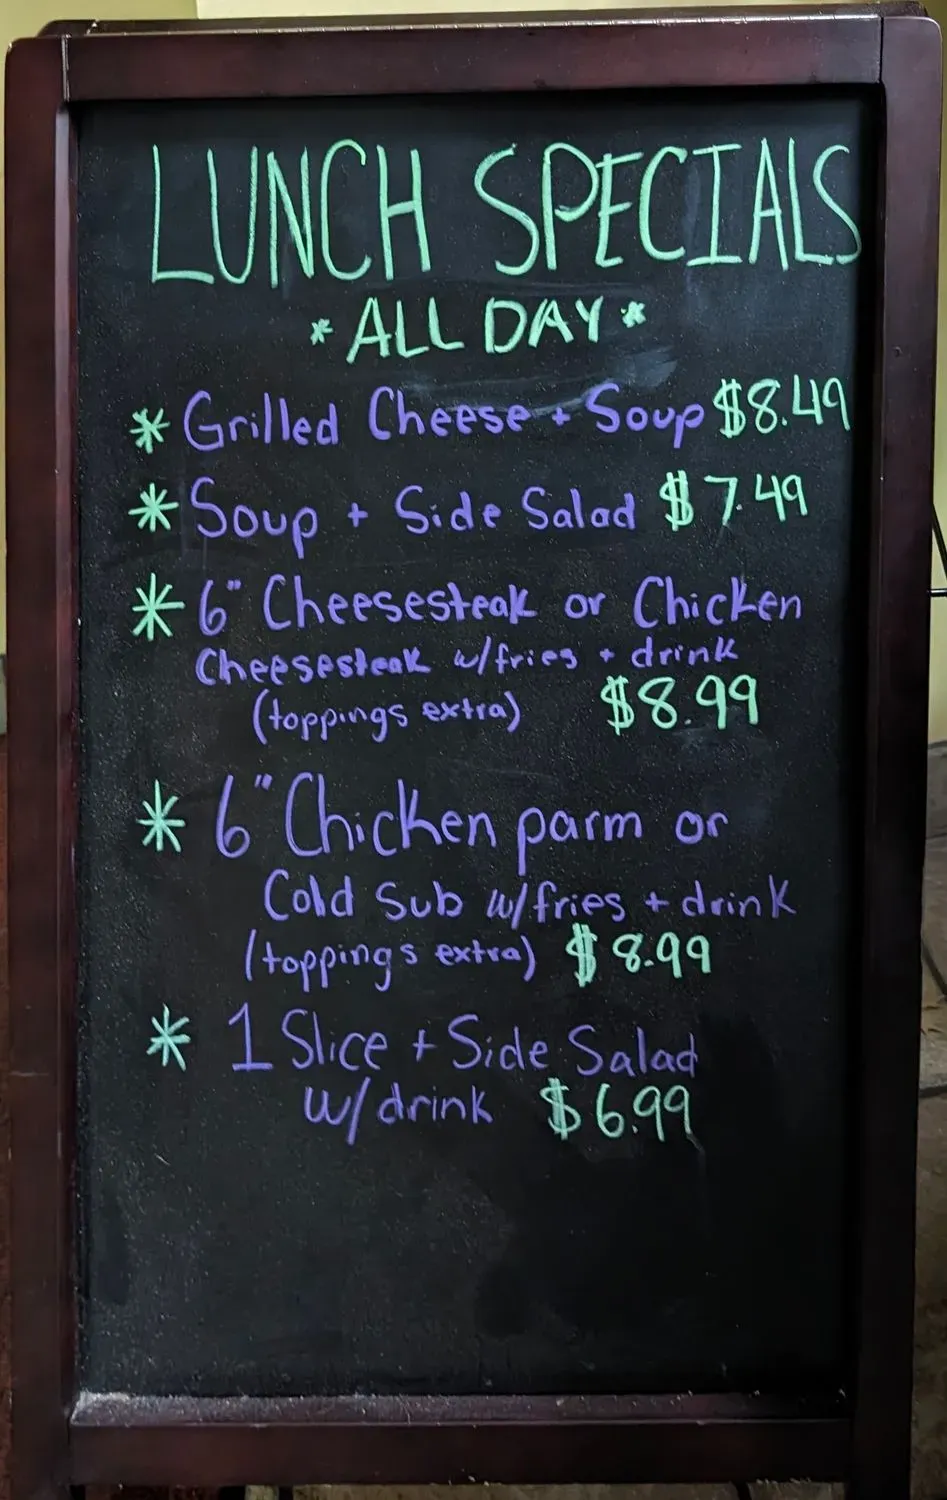 LUNCH SPECIALS
* ALL DAY *
* Grilled Cheese + Soup $8.49
* Soup + Side Salad $7.49
* 6" Cheesesteak or Chicken
Cheesesteak w/fries + drink
(toppings extra) $8.99
* 6" Chicken parm or
Cold Sub w/fries + drink
(toppings extra) $8.99
* 1 Slice + Side Salad
w/drink $6.99